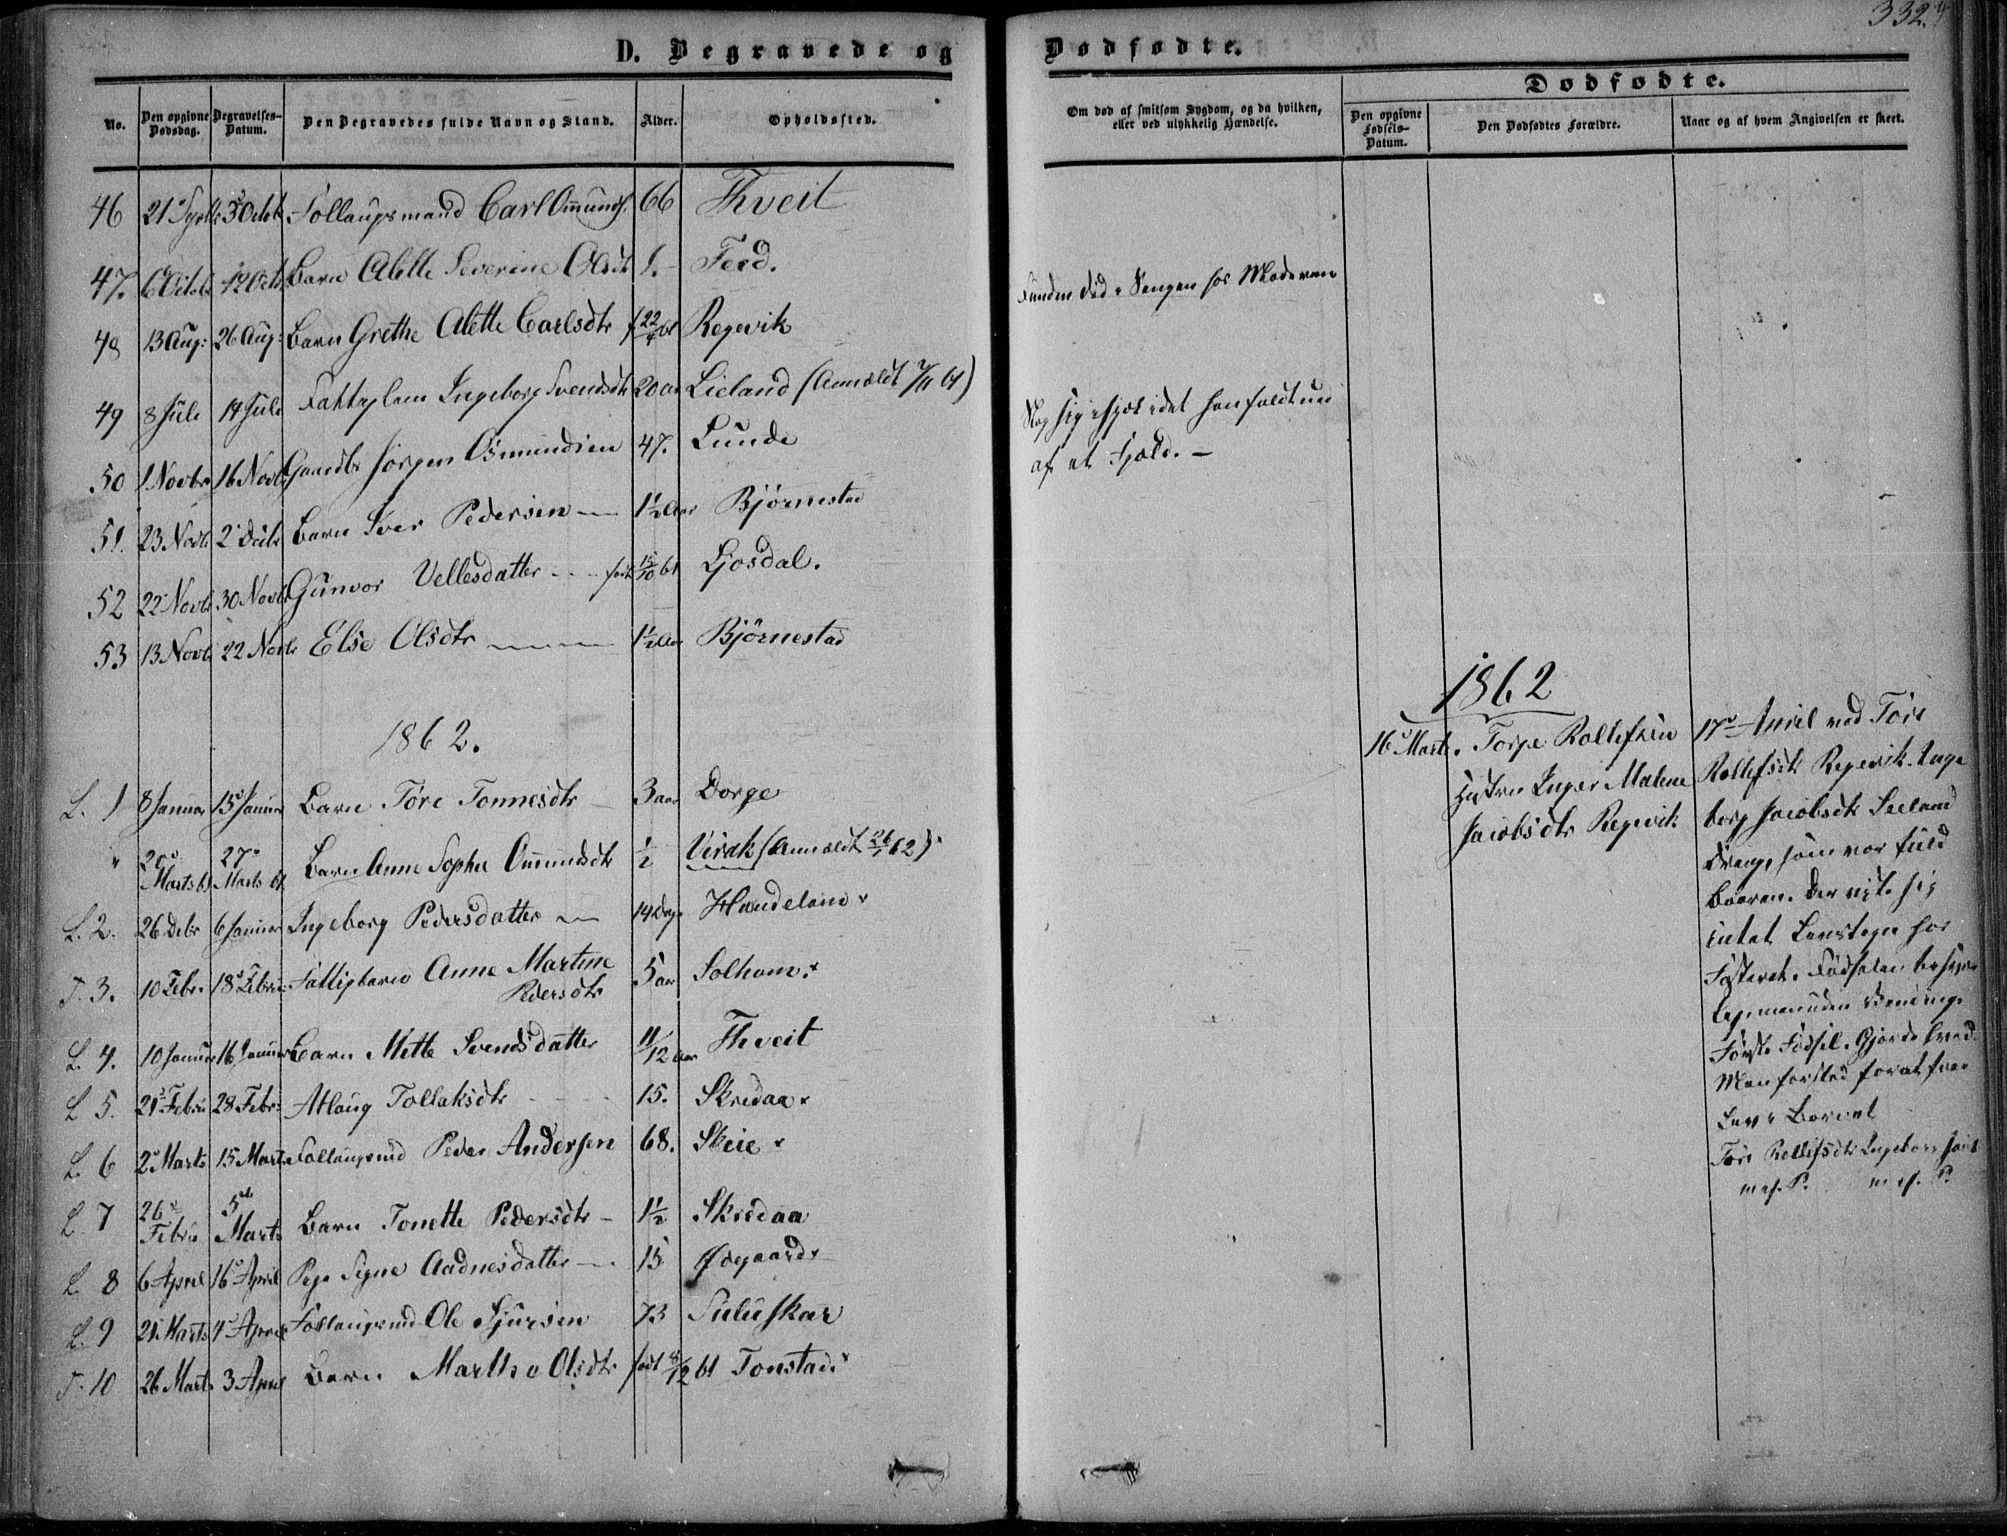 332.
D. Begravede og Dødfødte.
No. Den opgivne Dødsdag. Begravelses-Datum. Den Begravedes fulde Navn og Stand. Alder. Opholdssted.
Om død af smitsom Sygdom, og da hvilken, eller ved ulykkelig Hændelse.
Dødfødte.
Den opgivne Fødsels-Datum. Den Dødfødtes Forældre. Naar og af hvem Angivelsen er skeet.
46 21 3 Octob Follaugsmand Carl Omunds. 66 Thveit
47. 6 Octob 12 Octb Barn Alette Severine Olsdtr 1. Feed. Funden død i Sengen hos Moderen
48 13 Aug: 26 Aug: Barn Grethe Alette Carlsdtr f 22/4 61 Regevik
49 8 Juli 14 Juli Ingeborg Svendsdtr 20 aar Lieland (Anmeldt 7/11 61)
50 1 Novbr 16 Novbr Gaardbr Jørgen Osmundsen 47. Lunde Slog sig idet han faldt ud
af et Fjeld. —
51. 23 Novb 2 Decbr Barn Iver Pedersen 1½ Aar Bjørnestad
52 22 Novb 30 Novb Gunvor Vellesdatter født 15/10 61 Ljosdal.
53 13 Novb 22 Novb Else Olsdtr 1½ Aar Bjørnestad
1862.
L. 1 8 Januar 15 Januar Barn Tore Tonnesdtr 3 aar Dorge
" 20 Marts 61 27 Marts 61 Barn Anne Sophie Omundsdtr ½ Virak (Anmeldt 26/1 62)
L. 2. 26 Debr 6 Januar Ingeborg Pedersdatter 14 Dage Haudeland
T. 3. 10 Febr. 18 Febru Fattigbarn Anne Martine
Pedersdtr 5 aar Solhom.
L. 4. 10 Januar 16 Januar Barn Mette Svendsdatter 11/12 Aar Thveit
L 5. 21 Febru 28 Febr: Atlaug Tollaksdtr 15. Skredaa
L. 6 2 Marts 15 Marts Follaugsmd Peder Andersen 68. Skeie
L. 7 26 Febru 5 Marts Barn Tonette Pedersdtr 1½ Skredaa
L. 8 6 April 16 April Pige Signe Aadnesdatter 15 Øvgaard
L. 9 21 Marts 4 April Follaugsmd Ole Sjursen 73 Suluskar
T. 10 26 Marts 3 April Barn Marthe Olsdtr født 8/12 61 Tonstad
1862
16 Marts. Torge Rollefsen
Hustru Inger Malene
Jacobsdtr Regevik
17 April ved Tore
Rollefsdtr Regevik. Inge
borg Jacobsdtr Seeland
Dreng, som var fuld
baaren. Der viste sig
intet Livstegn hos
Fosteret. Fødselen
Første Fødsel. Gjorde hvad
Man forstod for at faae
Liv i Barnet
Tore Rollefsdtr Ingeborg Jacob
m. f. P. m. f. P.